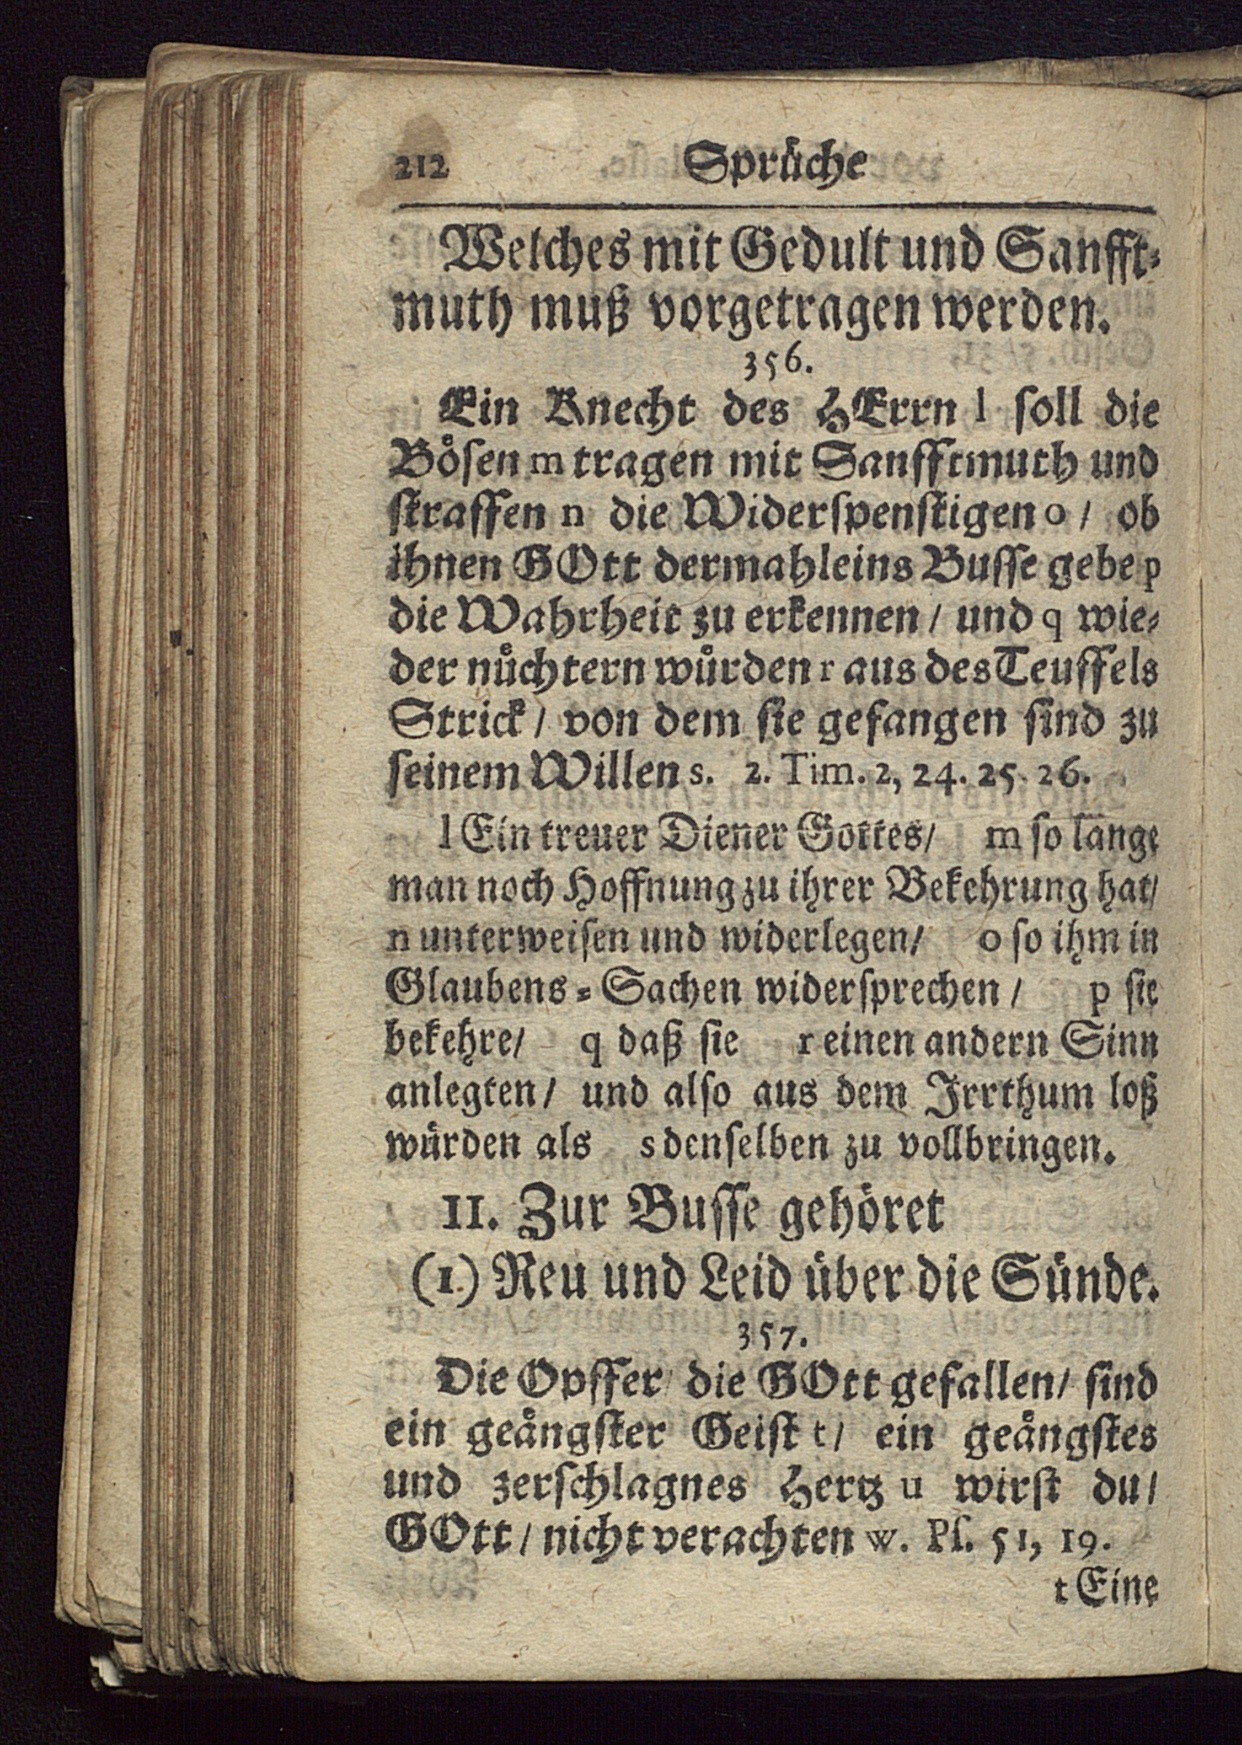 212 Sprüche
Welches mit Gedult und Sanfft⸗
muth muß vorgetragen werden.
356.
Ein Knecht des HErrn l soll die
Bösen m tragen mit Sanfftmuth und
straffen n die Widerspenstigen o / ob
ihnen GOtt dermahleins Busse gebe p
die Wahrheit zu erkennen / und q wie⸗
der nüchtern würden r aus des Teuffels
Strick / von dem sie gefangen sind zu
seinem Willen s. 2. Tim. 2, 24. 25. 26.
l Ein treuer Diener Gottes/ m so lange
man noch Hoffnung zu ihrer Bekehrung hat/
n unterweisen und widerlegen/ o so ihm in
Glaubens⸗Sachen widersprechen / p sie
bekehre/ q daß sie r einen andern Sinn
anlegten/ und also aus dem Irrthum loß
würden als s denselben zu vollbringen.
II. Zur Busse gehöret
(1.) Reu und Leid über die Sünde.
357.
Die Opffer die GOtt gefallen/ sind
ein geängster Geist t/ ein geängstes
und zerschlagnes Hertz u wirst du/
GOtt / nicht verachten w. Ps. 51, 19.
t Eine